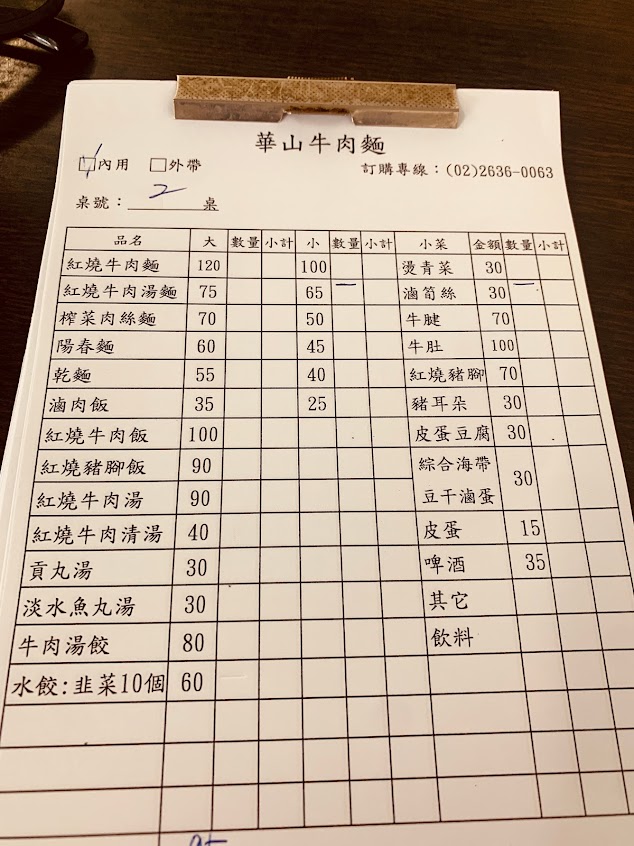 華山牛肉麵
□內用 □外帶 訂購專線：(02)2636-0063
桌號：2桌
品名 大 數量 小計 小 數量 小計 小菜 金額 數量 小計
紅燒牛肉麵 120 100 燙青菜 30
紅燒牛肉湯麵 75 65 一 滷筍絲 30 一
榨菜肉絲麵 70 50 牛腱 70
陽春麵 60 45 牛肚 100
乾麵 55 40 紅燒豬腳 70
滷肉飯 35 25 豬耳朵 30
紅燒牛肉飯 100 皮蛋豆腐 30
紅燒豬腳飯 90 綜合海帶
紅燒牛肉湯 90 豆干滷蛋 30
紅燒牛肉清湯 40 皮蛋 15
貢丸湯 30 啤酒 35
淡水魚丸湯 30 其它
牛肉湯餃 80 飲料
水餃:韭菜10個 60